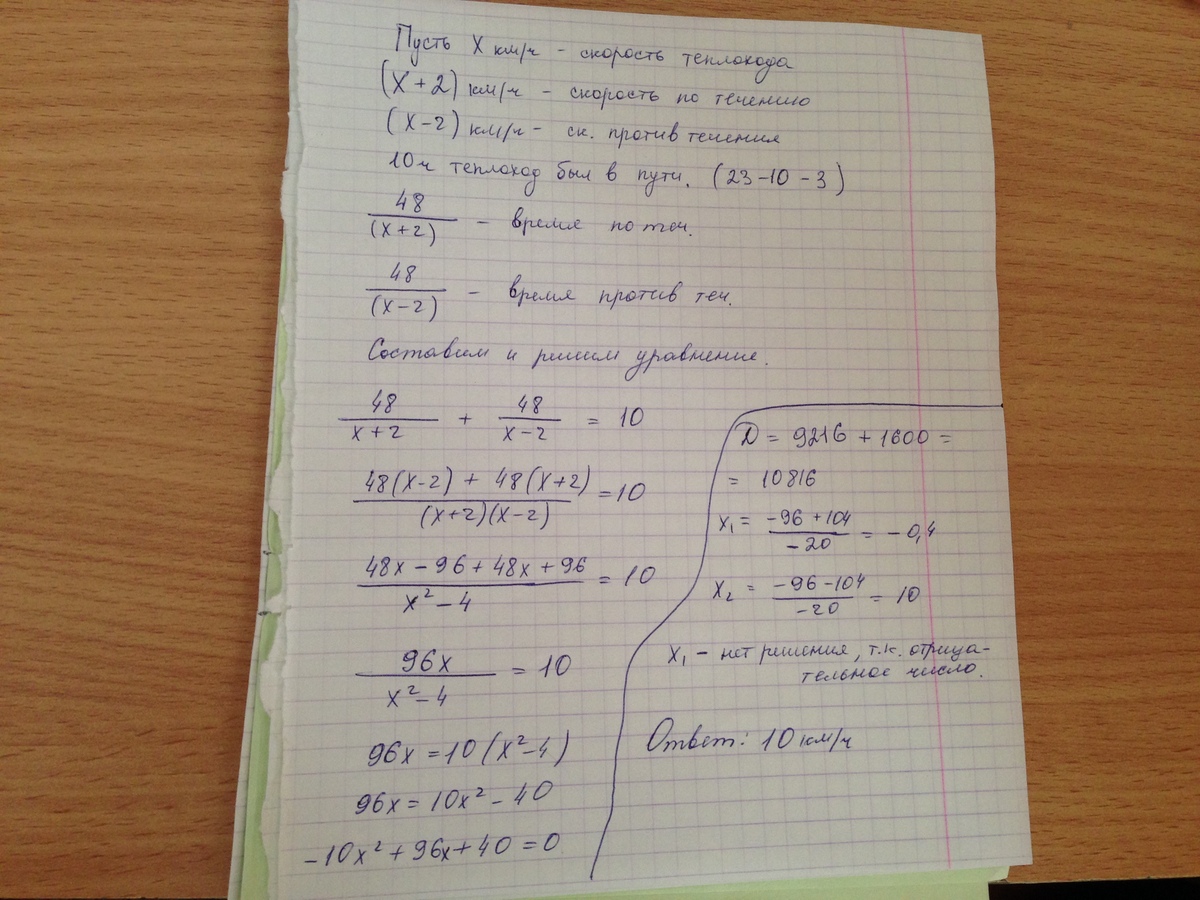 Пусть X км/ч - скорость теплохода
(X+2) км/ч - скорость по течению
(X-2) км/ч - ск. против течения
10ч теплоход был в пути. (23-10-3)
48/(X+2) - время по теч.
48/(X-2) - время против теч.
Составим и решим уравнение.
48/(x+2) + 48/(x-2) = 10
(48(x-2) + 48(x+2))/((x+2)(x-2)) = 10
(48x - 96 + 48x + 96)/(x² - 4) = 10
96x/(x² - 4) = 10
96x = 10(x² - 4)
96x = 10x² - 40
-10x² + 96x + 40 = 0
D = 9216 + 1600 =
= 10816
x₁ = (-96 + 104)/(-20) = -0,4
x₂ = (-96 - 104)/(-20) = 10
x₁ - нет решения, т.к. отрица-
тельное число.
Ответ: 10 км/ч